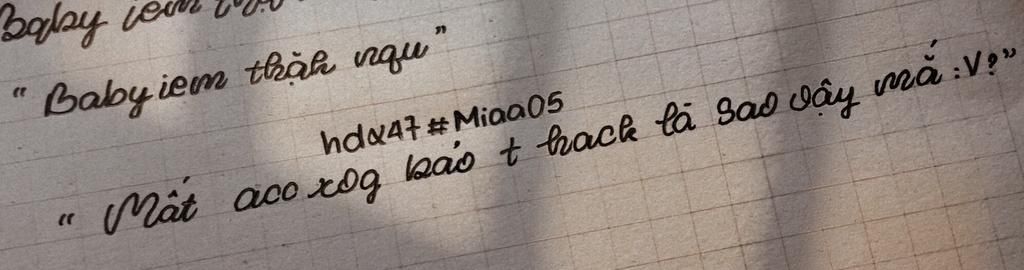 Baby iem
"Baby iem thặk ngu"
hdα47#Miaa05
"Mất acc xog bảo t hack là sao vậy mắ :V?"